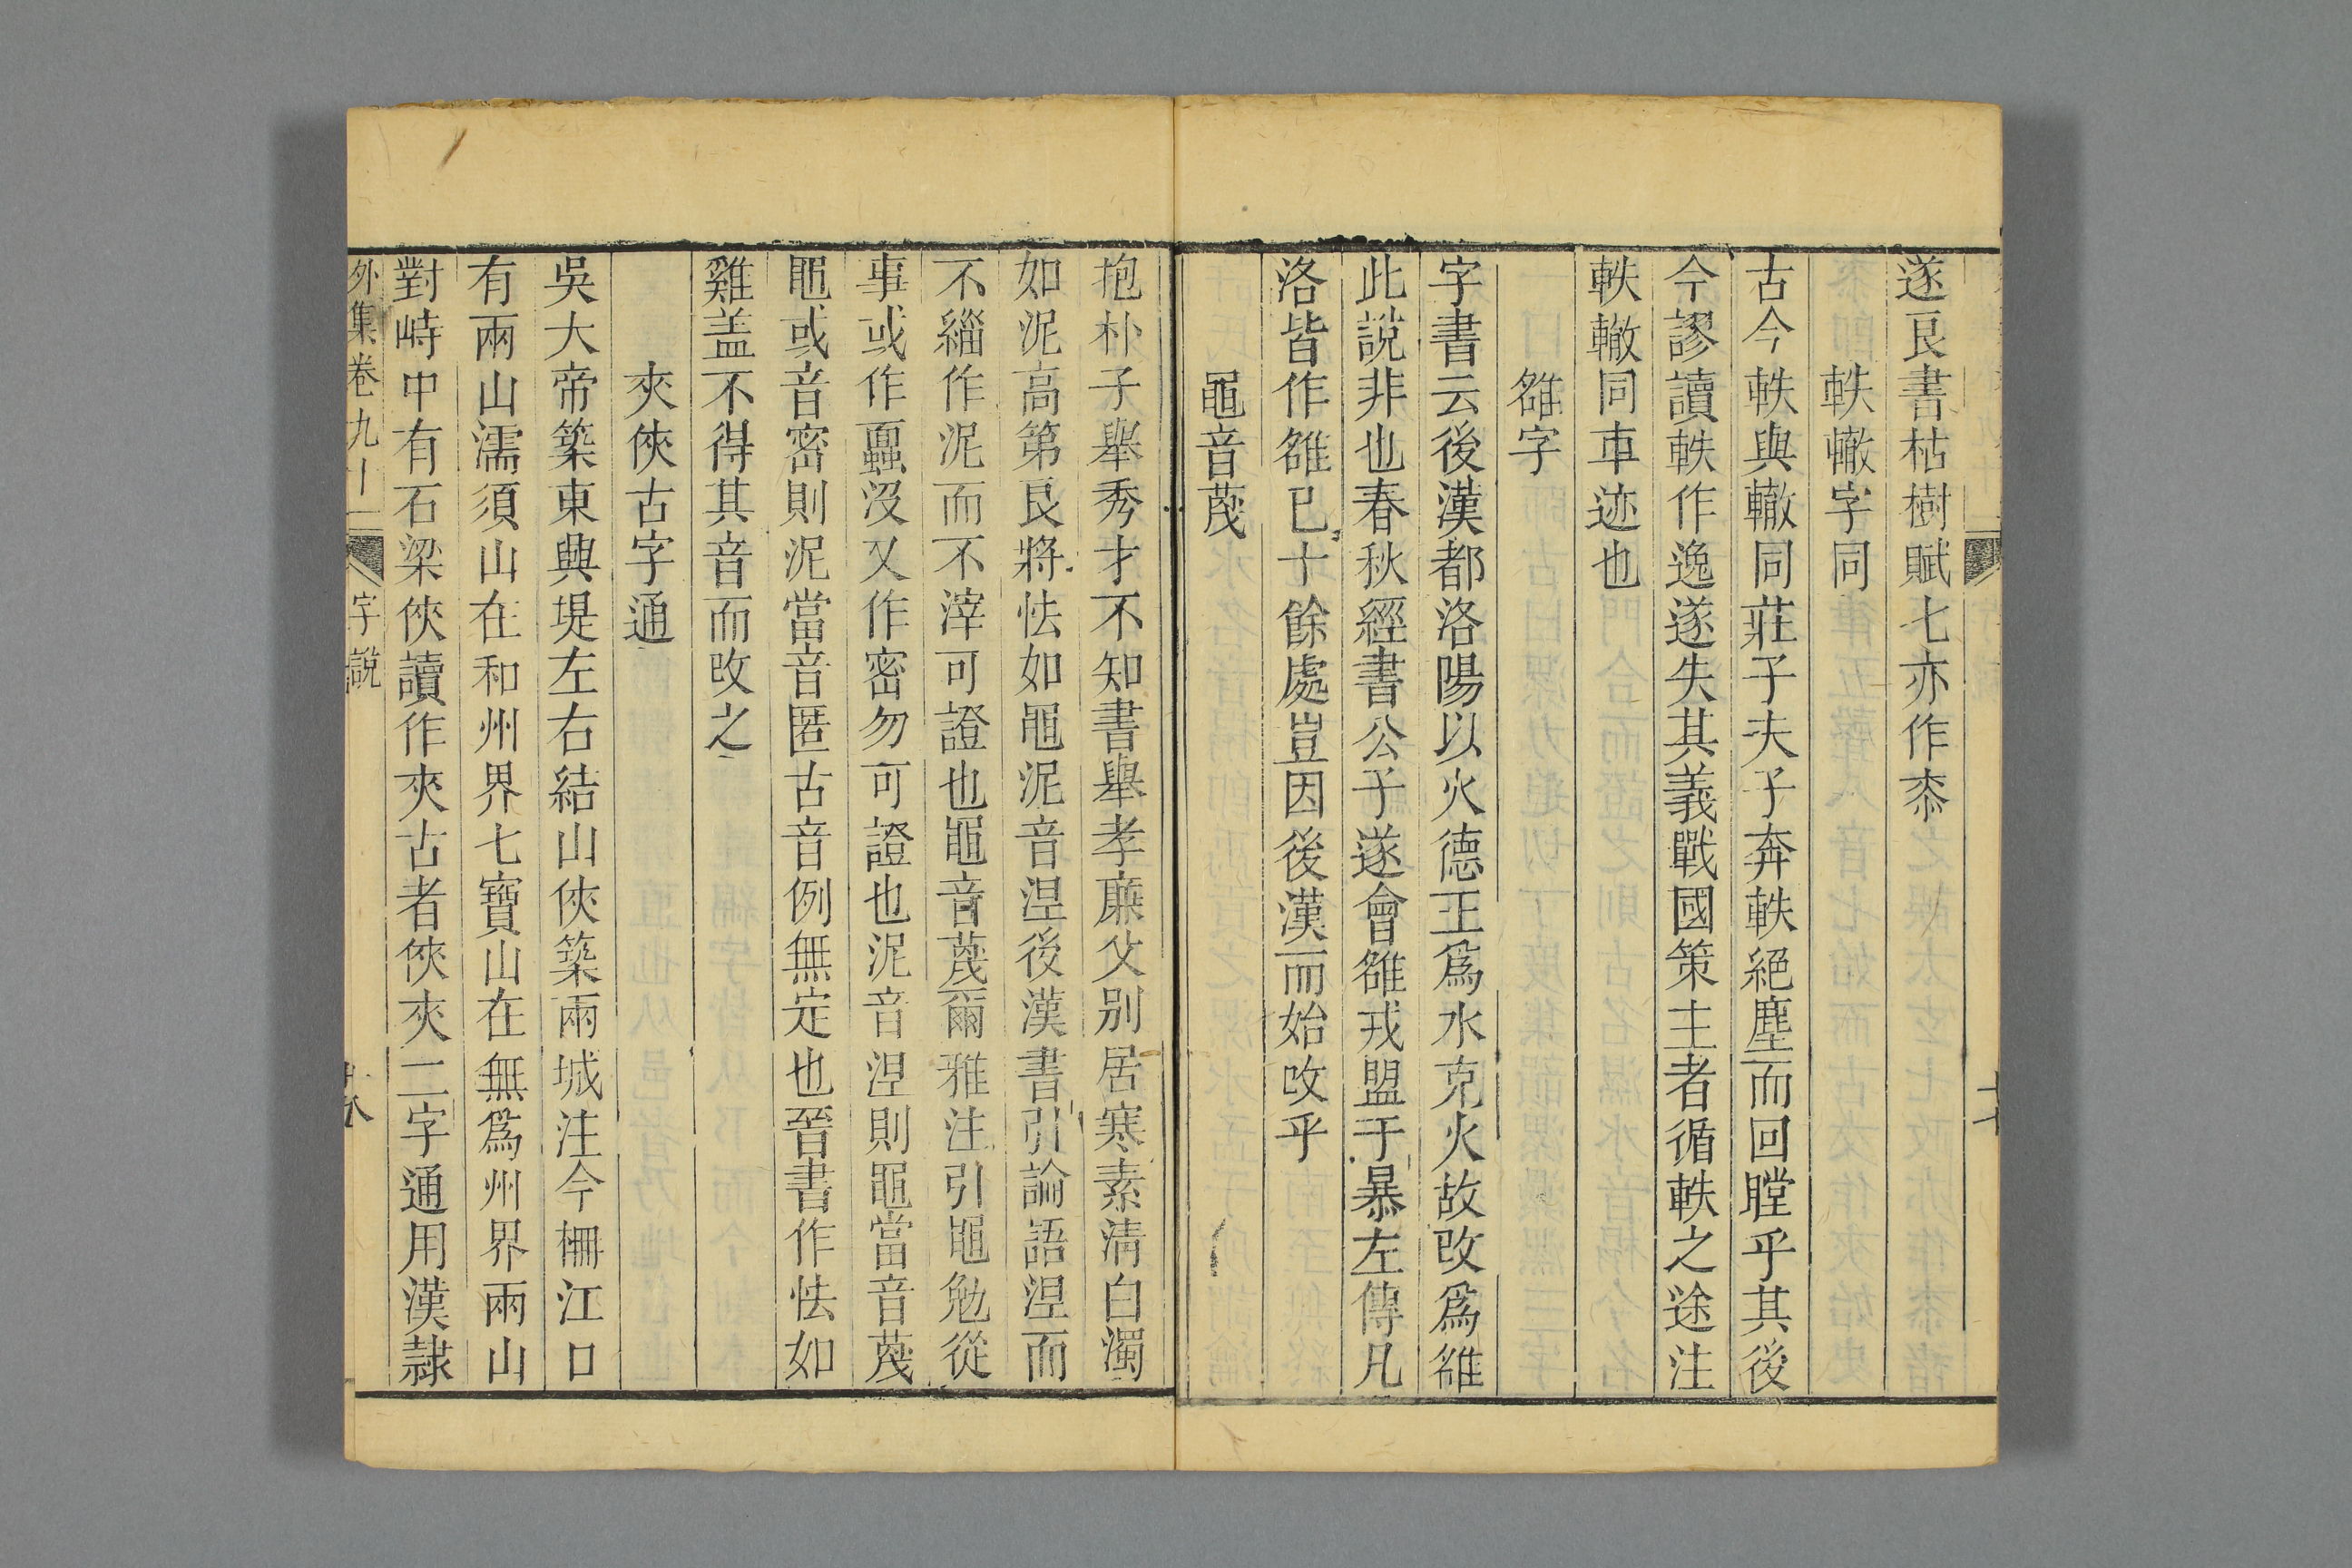 遂良書枯樹賦七亦作桼
軼轍字同
古今軼與轍同莊子夫子奔軼絕塵而回瞠乎其後
今謬讀軼作逸遂失其義戰國策主者循軼之途注
軼轍同車迹也
雒字
字書云後漢都洛陽以火德王爲水克火故改爲雒
此說非也春秋經書公子遂會雒戎盟于暴左傳凡
洛皆作雒已十餘處豈因後漢而始改乎
黽音蔑
抱朴子舉秀才不知書舉孝廉父别居寒素清白濁
如泥高第良將怯如黽泥音涅後漢書引論語涅而
不緇作泥而不滓可證也黽音蔑爾雅注引黽勉從
事或作蠠沒又作密勿可證也泥音涅則黽當音蔑
黽或音密則泥當音匿古音例無定也晉書作怯如
雞盖不得其音而改之
夾俠古字通
吳大帝築東興堤左右結山俠築兩城注今柵江口
有兩山濡須山在和州界七寶山在無爲州界兩山
對峙中有石梁俠讀作夾古者俠夾二字通用漢隷
外集卷九十 字說